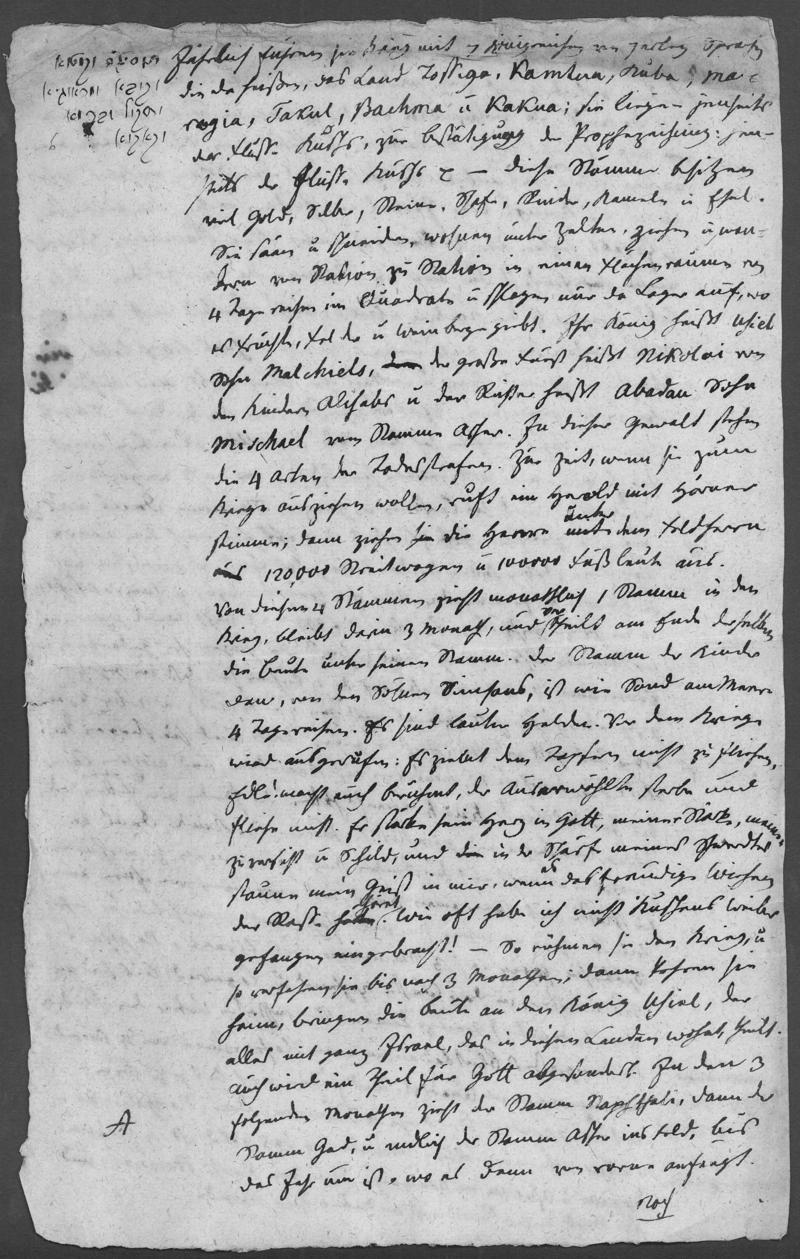 Jährlich führen sie Krieg mit 7 Königreichen von 7erley Sprachen
die da heißen, das Land Tossiga, Kamtua, Kuba, Ma-
rugia, Takul, Bachma u Kakua; sie liegen jenseits
der Flüsse Kuschs, zur bestätigung der Prophezeihung: jen-
seits der Flüsse Kuschs — diese Stämme besitzen
viel Gold, Silber, Steine, Schafe, Rinder, Kameele u Esel.
Sie säen u schneiden, wohnen unter Zelten, ziehen u wan-
dern von Station zu Station in einem Flächenraume von
4 Tagereisen im Quadrate u schlagen nur da Lager auf, wo
es Früchte, Felder u Weinberge giebt. Ihr König heißt Usiel
Sohn Malchiels, der große Fürst heißt Nikolai von
den Kindern Alihabs u der Richter heißt Abadan Sohn
Mischael vom Stamme Ascher. In dieser Gewalt stehen
die 4 Arten der Todesstrafen. Zur Zeit, wenn sie zum
Kriege ausziehen wollen, ruft ein Herold mit Hörner
stimme; dann ziehen die Heere unter dem Feldherrn
120,000 Streitwagen u 100000 Fußleute aus.
Von diesen 4 Stämmen zieht monathlich 1 Stamm in den
Krieg, bleibt darin 3 Monath, und vertheilt am Ende derselben
die beute unter seinen Stamm. Der Stamm der Kinder
Dan, von den Söhnen Simsons, ist wie Sand am Meere
4 Tagereisen. Es sind lauter Helden. Vor dem Kriege
wird ausgerufen: Es ziehmt dem Tapfern nicht zu fliehen,
macht euch berühmt, der Auserwählte sterbe und
fliehe nicht. Er stärke sein Herz in Gott, meiner Stärke, meiner
Zuversicht u Schild, und in der Schärfe meines Schwerdtes
staune mein Geist in mir, wenn das freudige Wiehern
der Rosse hört. Wie oft habe ich nicht Kuschens Weiber
gefangen eingebracht! — So rühmen sie den Krieg, u
so verfahren sie bis nach 3 Monathen; dann kehren sie
heim, bringen die beute an den König Usiel, der
alles mit ganz Israel, das in diesen Landen wohnt, theilt.
auch wird ein Theil für Gott abgesondert. In den 3
folgenden Monathen zieht der Stamm Naphthali, dann der
Stamm Gad, u endlich der Stamm Asser ins Feld, bis
das Jahr um ist, wo es dann von vorne anfängt.
Noch
A